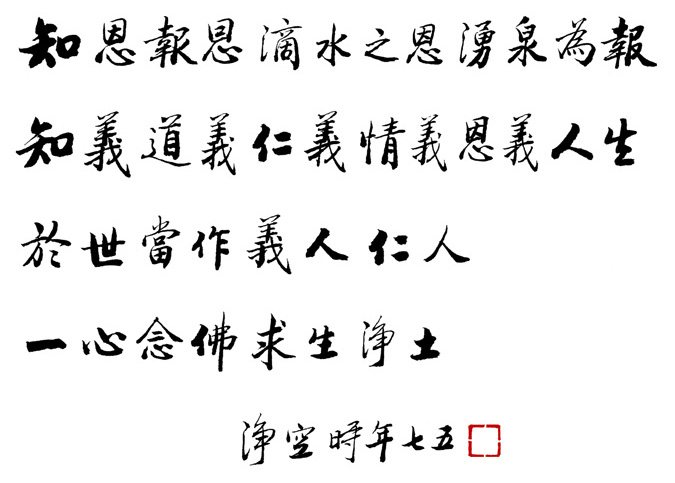 知恩報恩滴水之恩湧泉為報
知義道義仁義情義恩義人生
於世當作義人仁人
一心念佛求生淨土
淨空時年七五